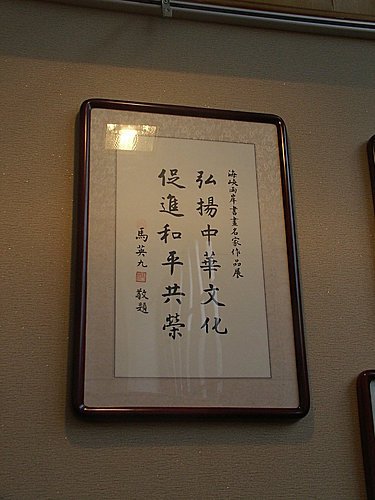 海峽兩岸書畫名家作品展
弘揚中華文化
促進和平共榮
馬英九 敬題